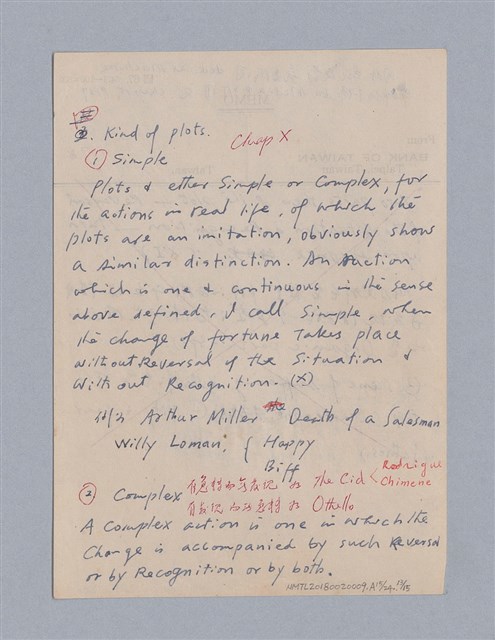 2. Kind of plots.
Chap X
① Simple
Plots & either Simple or Complex, for
the actions in real life, of which the
plots are an imitation, obviously show
a similar distinction. An auction
which is one & continuous in the sense
above defined, I call Simple, when
the change of fortune takes place
without Reversal of the Situation &
without Recognition. (X)
Arthur Miller the Death of a Salesman
Willy Loman. { Happy
Biff
② Complex 有意料而無發現 如 the Cid < Rodrigue
Chimene
有發現 如 Othello
A complex action is one in which the
change is accompanied by such Reversal
or by Recognition or by both.
BANK OF TAIWAN